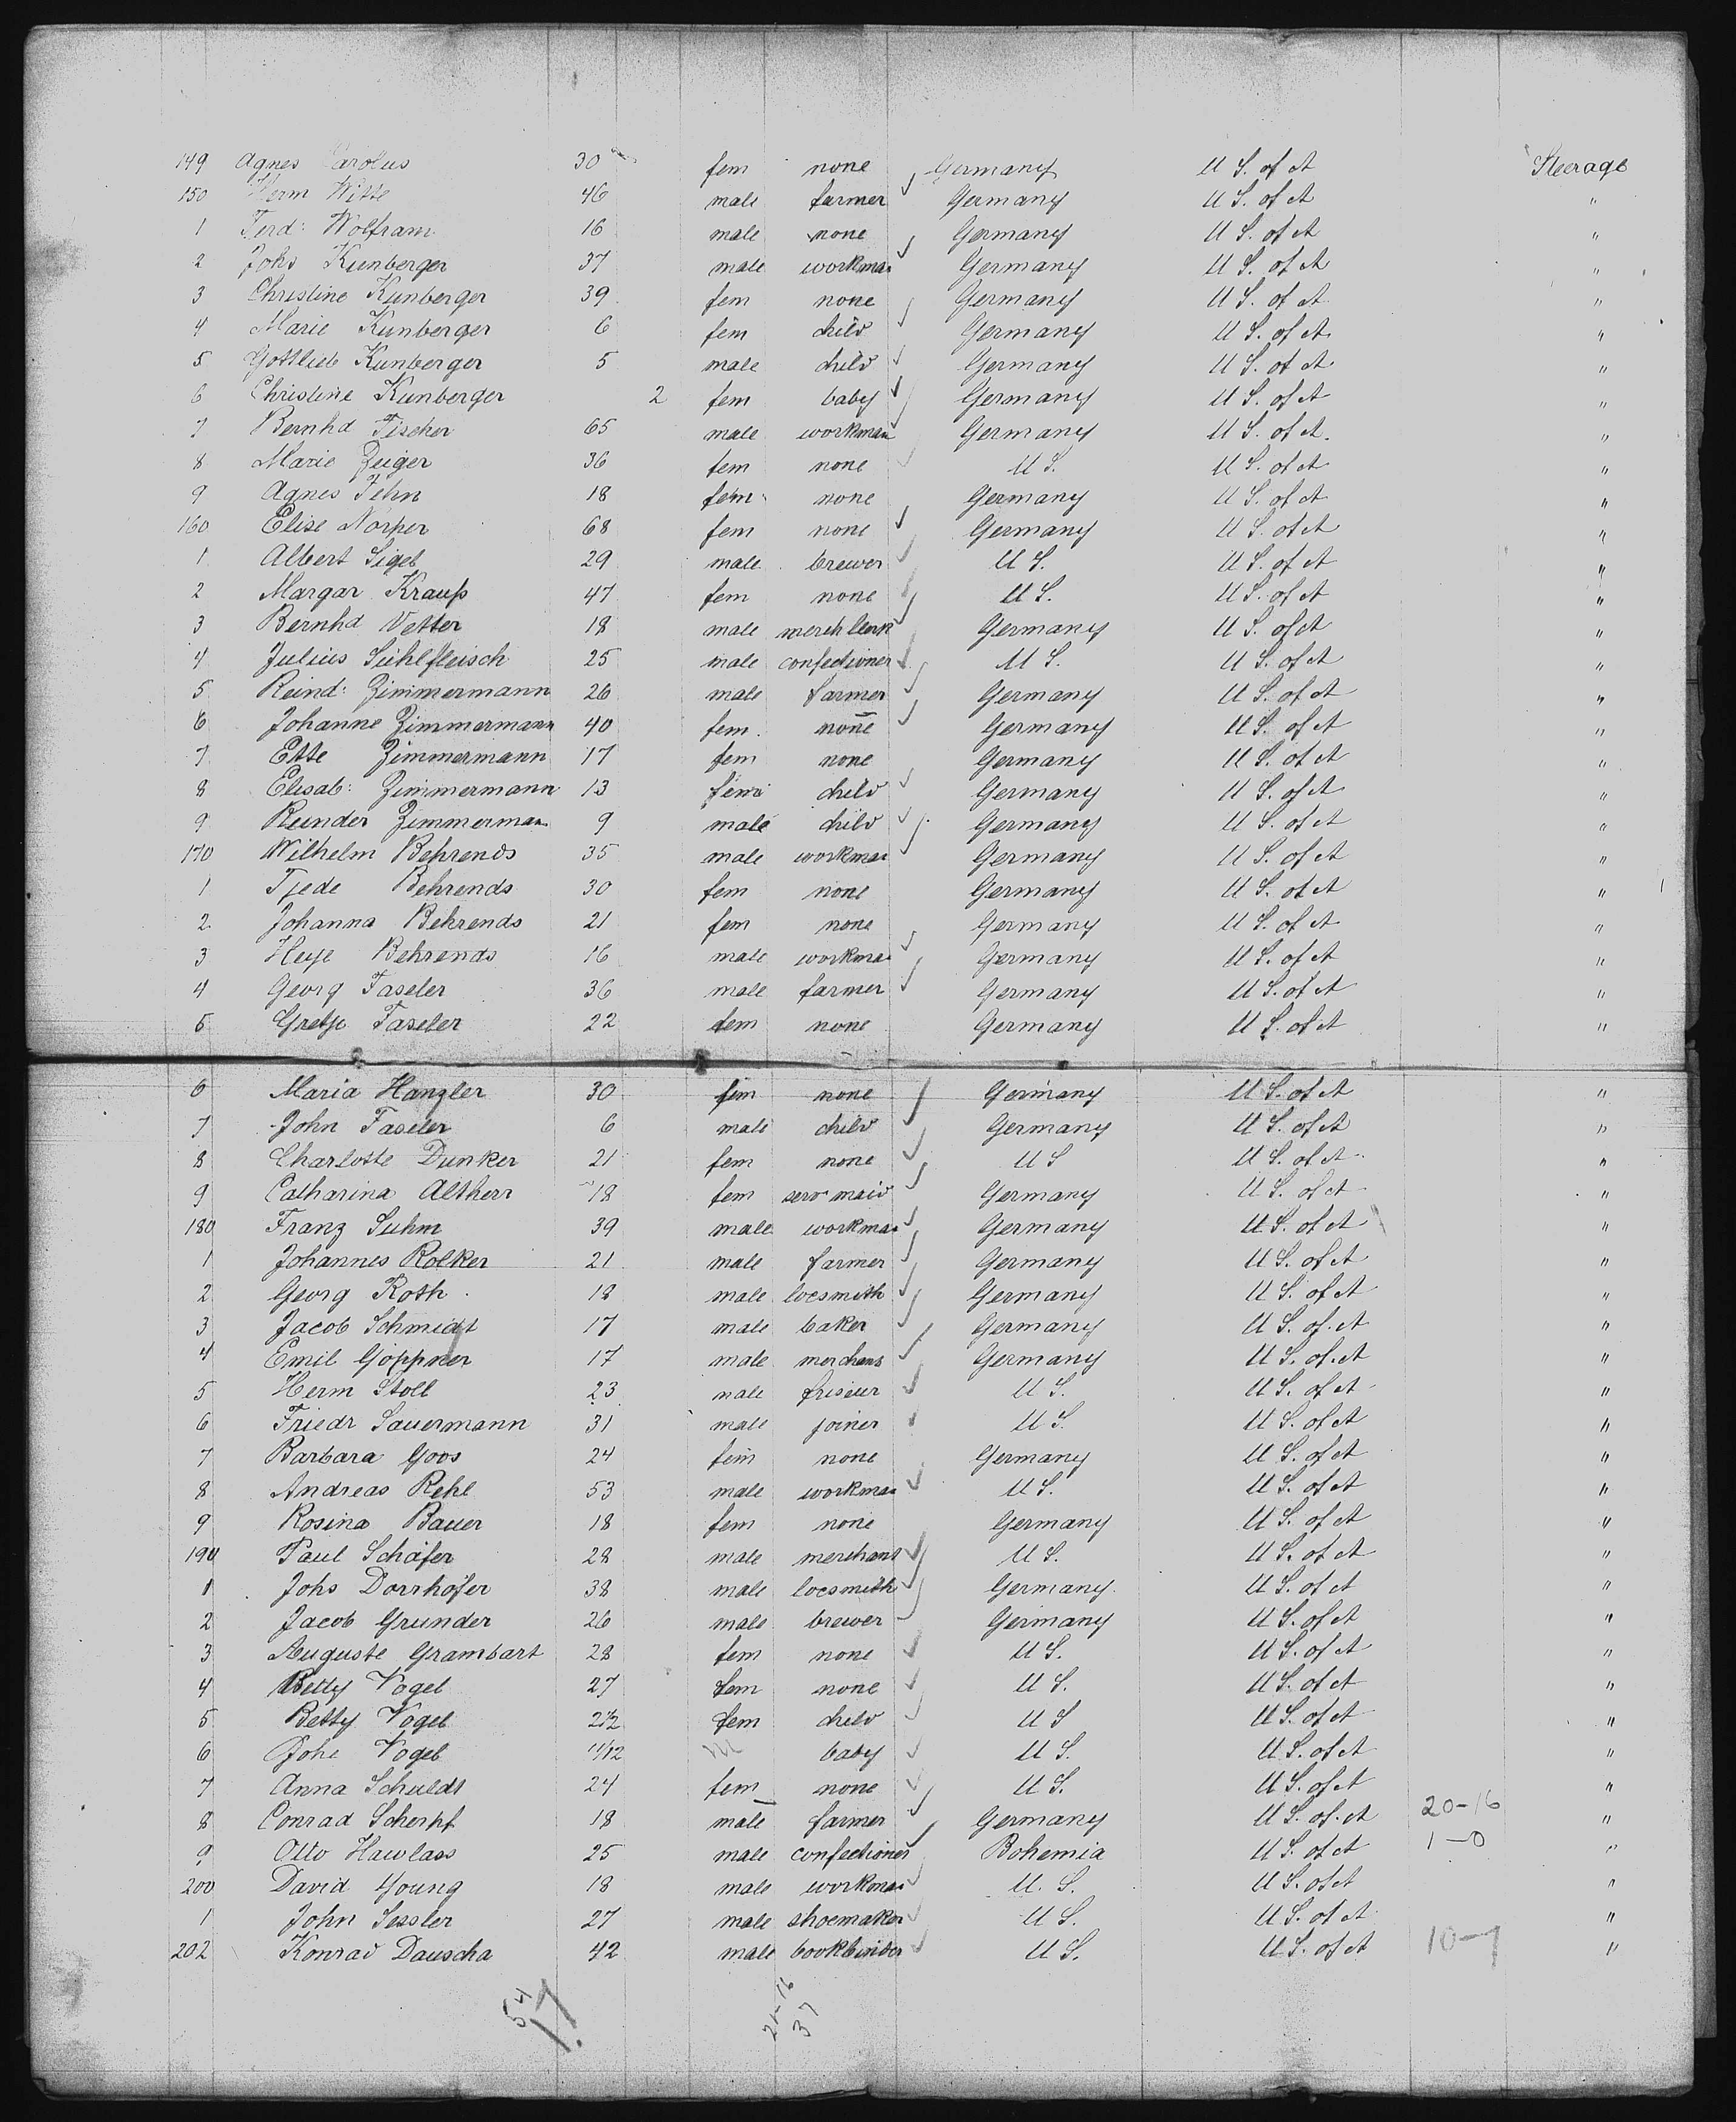 149 Agnes Carolus 30 fem none Germany U S. of A Steerage
150 Herm Witte 46 male farmer Germany U S. of A "
1 Ferd: Wolfram 16 male none Germany U S. of A "
2 Johs Kunberger 37 male workman Germany U S. of A "
3 Christine Kunberger 39 fem none Germany U S. of A "
4 Marie Kunberger 6 fem child Germany U S. of A "
5 Gottlieb Kunberger 5 male child Germany U S. of A "
6 Christine Kunberger 2 fem baby Germany U S. of A "
7 Bernhd Fischer 65 male workman Germany U S. of A. "
8 Marie Zeiger 36 fem none U S. U S. of A "
9 Agnes Fehn 18 fem none Germany U S. of A "
160 Elise Nörper 68 fem none Germany U S. of A "
1 Albert Sigel 29 male brewer U S. U S. of A "
2 Margar Krauß 47 fem none U S. U S. of A "
3 Bernhd Vetter 18 male merch clerk Germany U S. of A "
4 Julius Sühlfleisch 25 male confectioner U S. U S. of A "
5 Reind: Zimmermann 26 male farmer Germany U S. of A "
6 Johanne Zimmermann 40 fem none Germany U S. of A "
7 Ette Zimmermann 17 fem none Germany U S. of A "
8 Elisab: Zimmermann 13 fem child Germany U S. of A "
9 Reinder Zimmerman 9 male child Germany U S. of A "
170 Wilhelm Behrends 35 male workman Germany U S. of A "
1 Tjede Behrends 30 fem none Germany U S. of A "
2 Johanna Behrends 21 fem none Germany U S. of A "
3 Heye Behrends 16 male workman Germany U S. of A "
4 Georg Taseler 36 male farmer Germany U S. of A "
5 Gretje Taseler 22 fem none Germany U S. of A "
6 Maria Hanzler 30 fem none Germany U S. of A "
7 John Taseler 6 male child Germany U S. of A "
8 Charlotte Dunker 21 fem none U S U S. of A "
9 Catharina Altherr 18 fem serv maid Germany U S. of A "
180 Franz Suhm 39 male workman Germany U S. of A "
1 Johannes Rolker 21 male farmer Germany U S. of A "
2 Georg Roth 18 male locsmith Germany U S. of A "
3 Jacob Schmidt 17 male baker Germany U S. of A "
4 Emil Göppner 17 male merchant Germany U S. of A "
5 Herm Stoll 23 male friseur U S. U S. of A "
6 Friedr Sauermann 31 male joiner U S. U S. of A "
7 Barbara Goos 24 fem none Germany U S. of A "
8 Andreas Rehl 53 male workman U S. U S. of A "
9 Rosina Bauer 18 fem none Germany U S. of A "
190 Paul Schäfer 28 male merchant U S. U S. of A "
1 Johs Dorrhöfer 38 male locsmith Germany U S. of A "
2 Jacob Grunder 26 male brewer Germany U S. of A "
3 Auguste Grambart 28 fem none U S. U S. of A "
4 Betty Vogel 27 fem none U S. U S. of A "
5 Betty Vogel 2 1/2 fem child U S U S. of A "
6 Johe Vogel 11/12 m baby U S. U S. of A "
7 Anna Schuldt 24 fem none U S. U S. of A "
8 Conrad Scherpf 18 male farmer Germany U S. of A 20-16 "
9 Otto Hawlass 25 male confectioner Bohemia U S. of A 1-0 "
200 David Young 18 male workman U. S. U S. of A "
1 John Sessler 27 male shoemaker U S. U S. of A "
202 Konrad Dauscha 42 male bookbinder U S. U S. of A 10-7 "
54 17
21-16
37